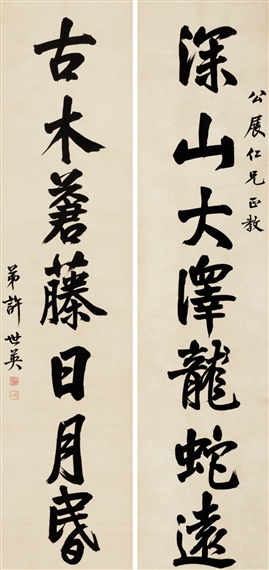 公展仁兄正教
深山大澤龍蛇遠
古木蒼藤日月昏
弟許世英